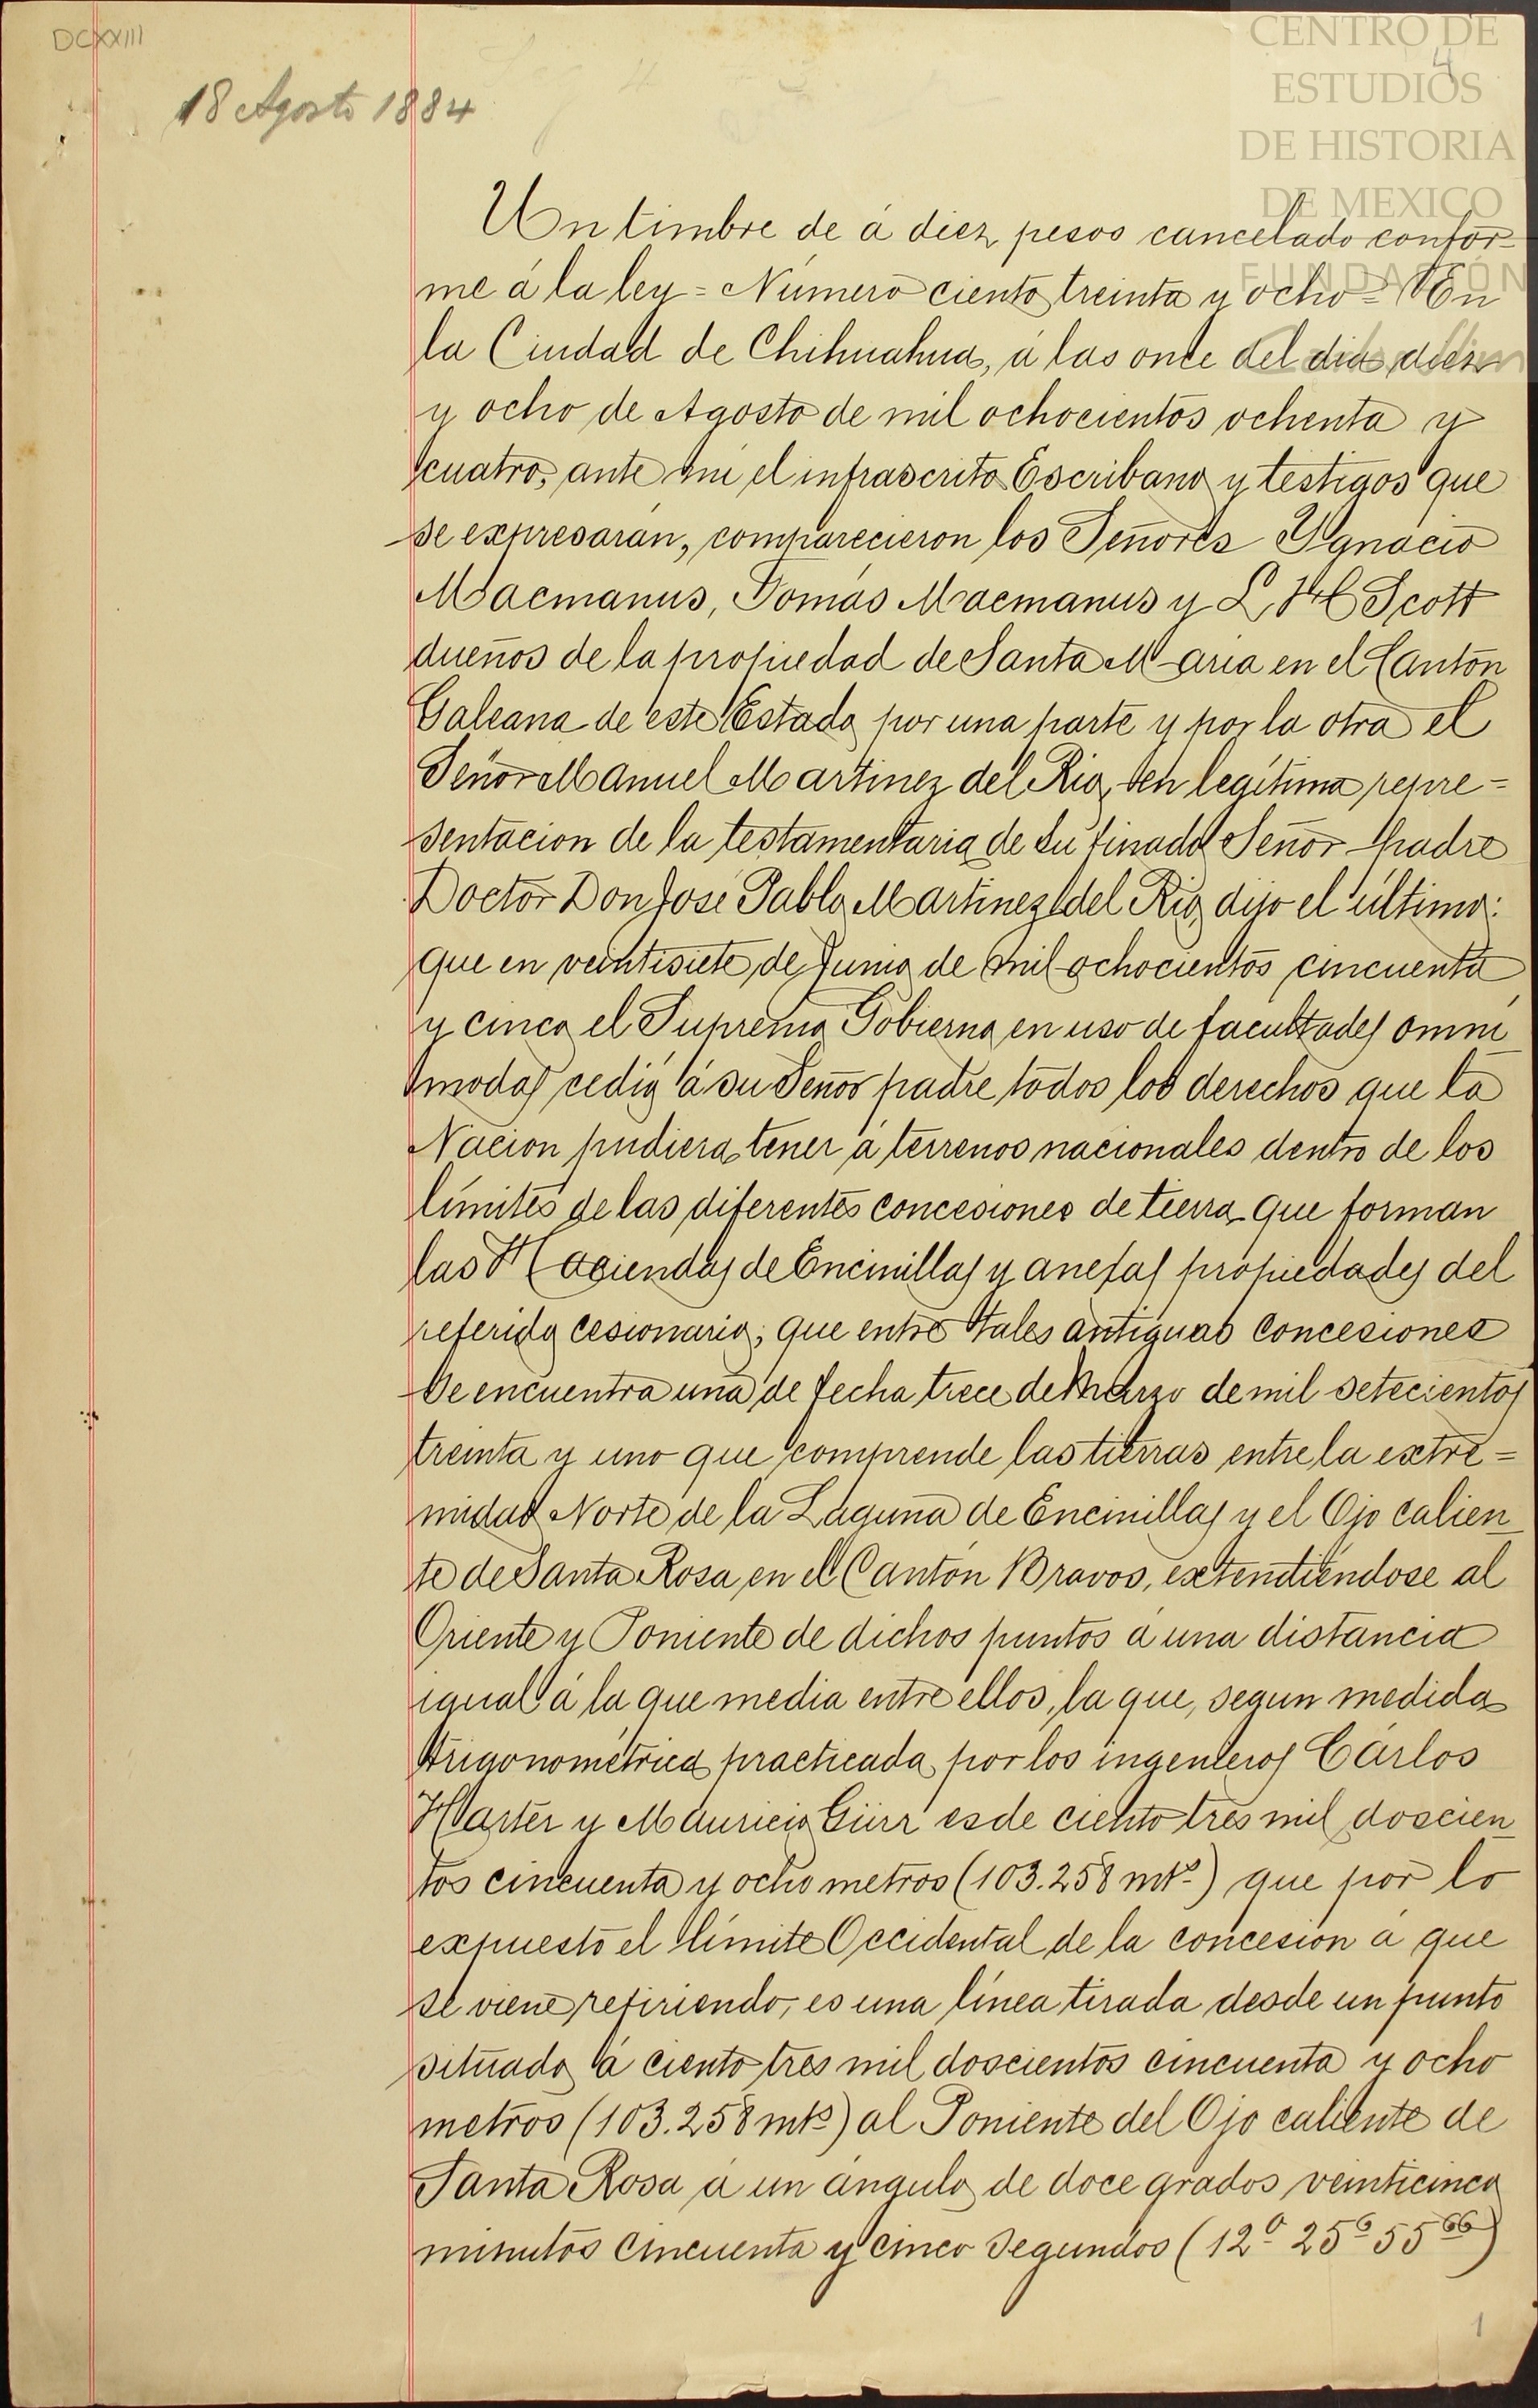 DCXXIII
18 Agosto 1884
CENTRO DE
ESTUDIOS
DE HISTORIA
DE MEXICO
FUNDACIÓN
4
Un timbre de á diez pesos cancelado confor-
me á la ley = Número ciento treinta y ocho = En
la Ciudad de Chihuahua, á las once del dia diez
y ocho de Agosto de mil ochocientos ochenta y
cuatro, ante mi el infrascrito Escribano y testigos que
se expresarán, comparecieron los Señores Ygnacio
Macmanus, Tomás Macmanus y L. H Scott
dueños de la propiedad de Santa Maria en el Cantón
Galeana de este Estado por una parte y por la otra el
Señor Manuel Martinez del Rio, en legítima repre=
sentacion de la testamentaria de su finado Señor padre
Doctor Don José Pablo Martinez del Rio, dijo el último:
que en veintisiete de Junio de mil ochocientos cincuenta
y cinco el Supremo Gobierno en uso de facultades omni
modas cedió á su Señor padre todos los derechos que la
Nacion pudiera tener á terrenos nacionales dentro de los
límites de las diferentes concesiones de tierra que forman
las Haciendas de Encinillas y anexas propiedades del
referido cesionario; que entre tales antiguas concesiones
se encuentra una de fecha trece de Marzo de mil setecientos
treinta y uno que comprende las tierras entre la extre=
midad Norte de la Laguna de Encinillas y el Ojo calien
te de Santa Rosa en el Cantón Bravos, extendiéndose al
Oriente y Poniente de dichos puntos á una distancia
igual á la que media entre ellos, la que, segun medida
trigonométrica practicada por los ingenieros Cárlos
Harter y Mauricio Gürr es de ciento tres mil doscien
tos cincuenta y ocho metros (103.258 mts) que por lo
expuesto el límite Occidental de la concesion á que
se viene refiriendo, es una línea tirada desde un punto
situado á ciento tres mil doscientos cincuenta y ocho
metros (103.258 mts) al Poniente del Ojo caliente de
Santa Rosa á un ángulo de doce grados veinticinco
minutos cincuenta y cinco segundos (12º 25' 55'')
1